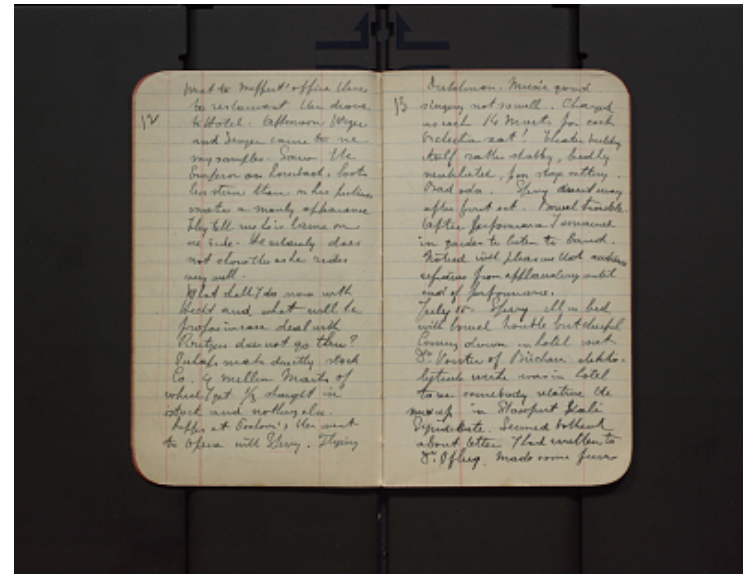 12
went to Meffert' office thence
to restaurant then drove
to Hotel. Afternoon
and came to see
my samples. Saw the
Emperor on horseback, looks
less stern than in his pictures
makes a manly appearance
They tell me he is lame on
one side. He certainly does
not show this as he rides
very well.
What shall I do now with
Hecht and what will be
propos in case deal with
Roetgers does not go thru?
Perhaps make directly stock
Co. 4 million Marks of
which I get 1/3 straight in
stock and nothing else.
Supper at then went
to Opera with Sperry. Flying
13
Dutchman. Music good
singing not so well. Charged
us each 14 Marks for each
orchestra seat! Theater building
itself rather shabby, badly
ventilated, fine stage setting.
Sperry went away
after first act. Bowel trouble.
After performance I remained
in garden to listen to band.
Noticed with pleasure that audience
refrains from applauding until
end of performance.
July 15. Sperry ill in bed
with bowel trouble but cheerful
Coming down in hotel met
Dr. of
works was in hotel
to see somebody relative the
mix up in
Syndicate. Seemed
about letter I had written to
Dr. Made some